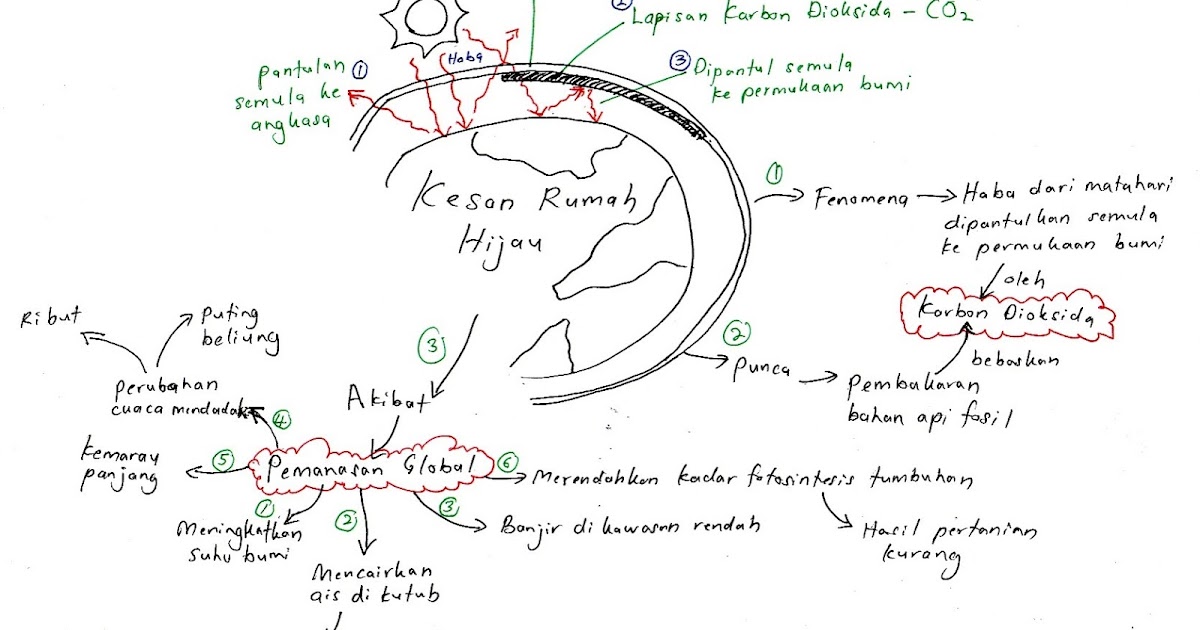 ② Lapisan Karbon Dioksida - CO2
Haba
Pantulan ①
semula ke
angkasa
③ Dipantul semula
ke permukaan bumi
Kesan Rumah
Hijau
①
Fenomena
Haba dari matahari
dipantulkan semula
ke permukaan bumi
oleh
Karbon Dioksida
bebaskan
②
Punca
Pembakaran
bahan api fosil
③
Akibat
Pemanasan Global
①
Meningkatkan
suhu bumi
②
Mencairkan
ais di kutub
③
Banjir di kawasan rendah
④
Perubahan
cuaca mendadak
Ribut
Puting
beliung
⑤
Kemaray
panjang
⑥
Merendahkan kadar fotosintesis tumbuhan
Hasil pertanian
kurang